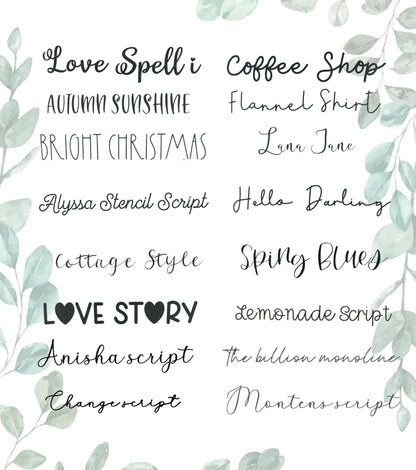 Love Spell i
Coffee Shop
AUTUMN SUNSHINE
Flannel Shirt
BRIGHT CHRISTMAS
Luna Jane
Alyssa Stencil Script
Hello Darling
Cottage Style
Sping Blues
LOVE STORY
Lemonade Script
Anisha script
The billion monoline
Change script
Montens script